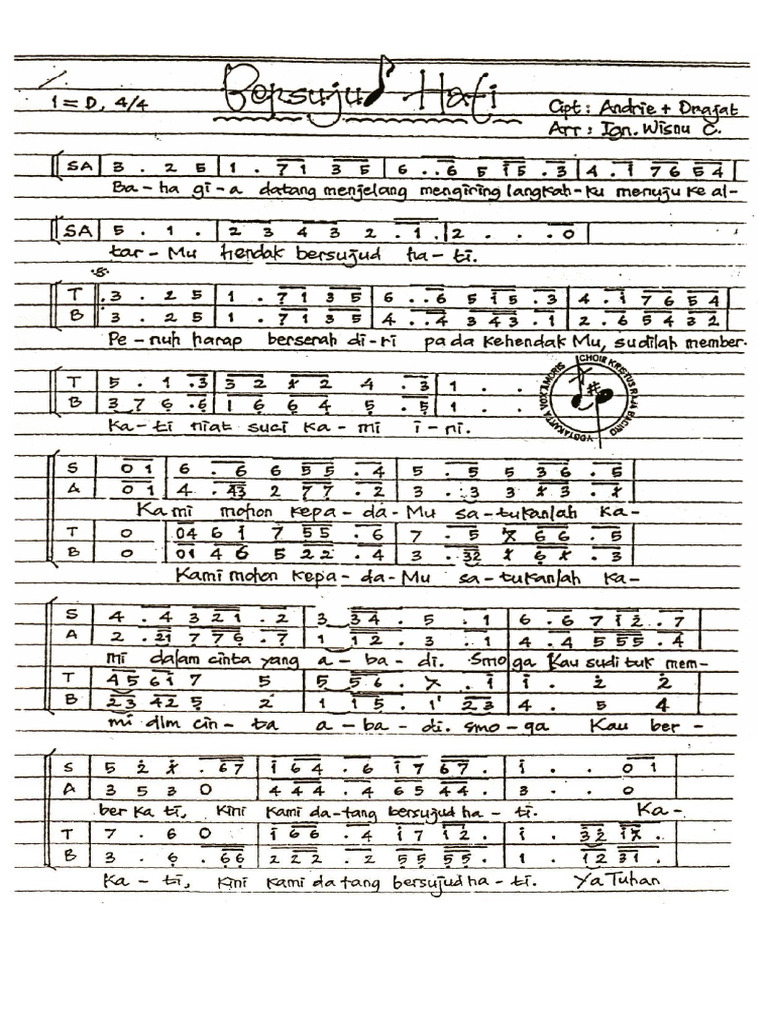 Bersujud Hati
1 = D, 4/4
Cipt : Andrie + Drajat
Arr : Ign. Wisnu C.
SA 3 . 2 5 | 1 . 7 1 3 5 | 6 . . 6 5 i 5 . 3 | 4 . i 7 6 5 4
Ba - ha gi - a datang menjelang mengiring langkah - ku menuju ke al -
SA 5 . 1 . | 2 3 4 3 2 . 1 . | 2 . . . 0
tar - Mu hendak bersujud ha - ti.
T 3 . 2 5 | 1 . 7 1 3 5 | 6 . . 6 5 i 5 . 3 | 4 . i 7 6 5 4
B 3 . 2 5 | 1 . 7 1 3 5 | 4 . . 4 3 4 3 . 1 | 2 . 6 5 4 3 2
Pe - nuh harap berserah di - ri pada kehendak Mu, sudilah member.
T 5 . 1 . 3 | 3 2 1 2 4 . 3 | 1 . .
B 3 7 6 . 6 | 1 6 6 4 5 . 5 | 1 . .
Ka - ti niat suci ka - mi i - ni.
CHOIR KRISTUS RAJA BACIRO YOGYAKARTA VOX AMORIS
S 0 1 | 6 . 6 6 5 5 . 4 | 5 . 5 5 3 6 . 5
A 0 1 | 4 . 4 3 2 7 7 . 2 | 3 . 3 3 . 3 .
Kami mohon kepa - da - Mu sa - tukanlah ka -
T 0 | 0 4 6 i 7 5 5 . 6 | 7 . 5 6 6 . 5
B 0 | 0 1 4 6 5 2 2 . 4 | 3 . 3 2 6 . 3
Kami mohon kepa - da - Mu sa - tukanlah ka -
S 4 . 4 3 2 1 . 2 | 3 3 4 . 5 . 1 | 6 . 6 7 i 2 . 7
A 2 . 2 1 7 7 6 . 7 | 1 1 2 . 3 . 1 | 4 . 4 5 5 5 . 4
mi dalam cinta yang a - ba - di. Smoga Kau sudi tuk mem -
T 4 5 6 i 7 5 | 5 5 6 . 7 . i | i . 2 2
B 2 3 4 2 5 2 | 1 1 5 . 1 2 3 | 4 . 5 4
mi dlm cin - ta a - ba - di. smo - ga Kau ber -
S 5 2 . 6 7 | i 6 4 . 6 i 7 6 7 . | i . . 0 1
A 3 5 3 0 | 4 4 4 . 4 6 5 4 4 . | 3 . . 0
ber ka ti, kini kami da - tang bersujud ha - ti. Ka -
T 7 . 6 0 | i 6 6 . 4 i 7 i 2 . | i . 3 2 i 7 .
B 3 . 6 . 6 6 | 2 2 2 . 2 5 5 5 5 . | 1 . 1 2 3 1 .
Ka - ti, kini kami da tang bersujud ha - ti. Ya Tuhan